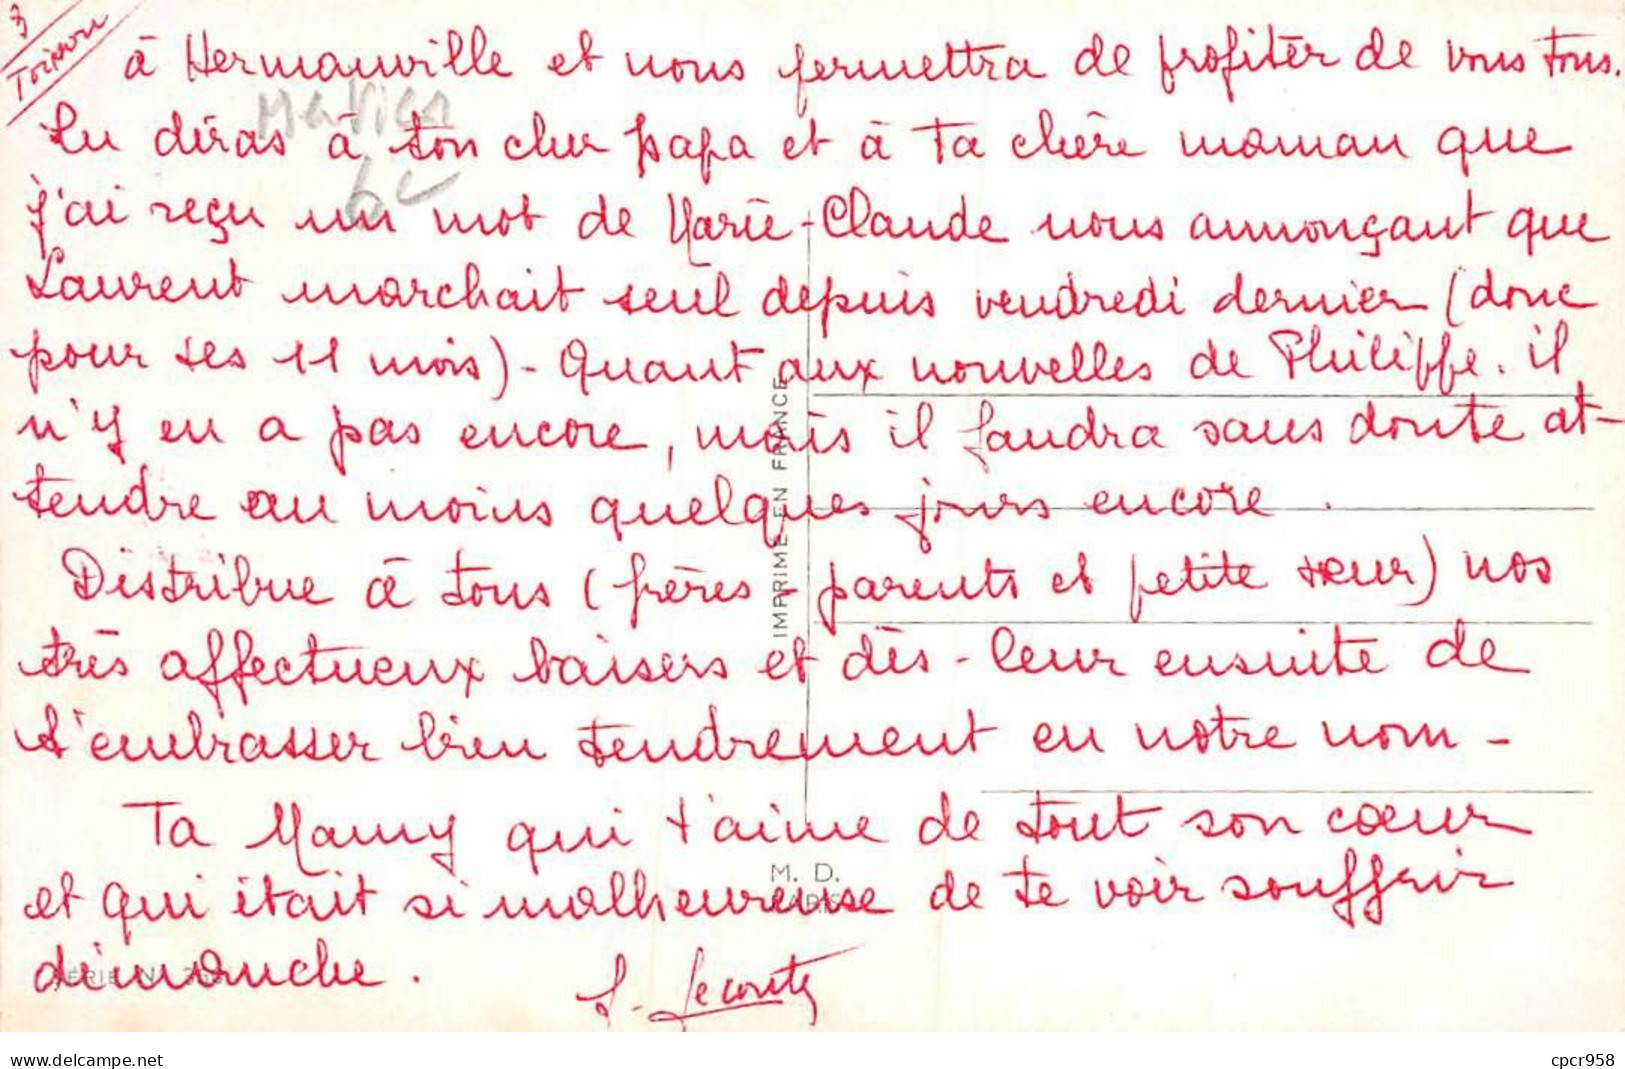 3
à Hermanville et nous permettra de profiter de vous tous.
Tu diras à ton cher papa et à ta chère maman que
j'ai reçu un mot de Marie-Claude nous annonçant que
Laurent marchait seul depuis vendredi dernier (donc
pour ses 11 mois) - Quant aux nouvelles de Philippe. il
n'y en a pas encore, mais il faudra sans doute at-
tendre au moins quelques jours encore.
Distribue à tous (frères - parents et petite sœur) nos
très affectueux baisers et dis-leur ensuite de
t'embrasser bien tendrement en notre nom -
Ta Mamy qui t'aime de tout son cœur
et qui était si malheureuse de te voir souffrir
dimanche.
IMPRIMÉ EN FRANCE
M. D.
PARIS
SÉRIE N
delcampe.net
cpcr958